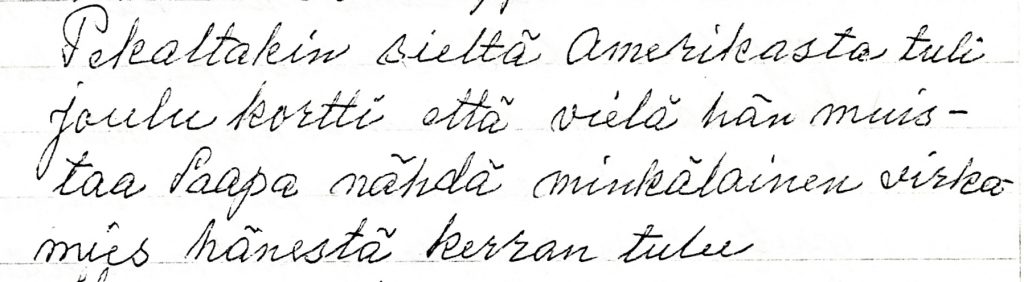 Pekaltakin sieltä Amerikasta tuli
joulu kortti että vielä hän muis-
taa Saapa nähdä minkälainen virka
mies hänestä kerran tulee